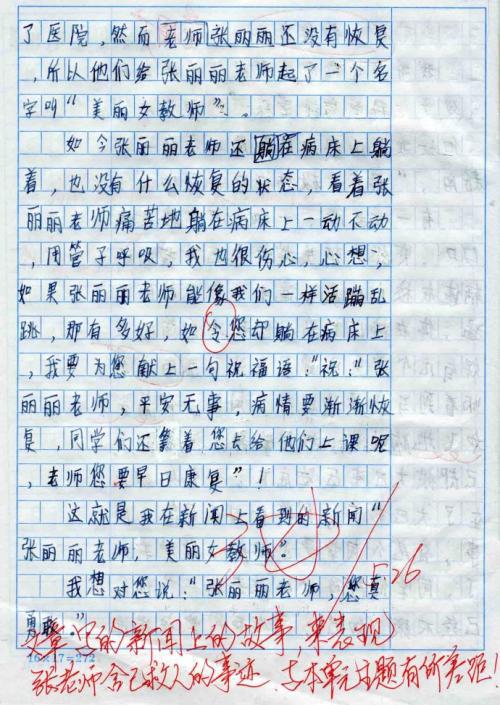 了医院，然而老师张丽丽还没有恢复
，所以他们给张丽丽老师起了一个名
字叫“美丽女教师”。
如今张丽丽老师还躺在病床上躺
着，也没有什么恢复的状态，看着张
丽丽老师痛苦地躺在病床上一动不动
，用管子呼吸，我也很伤心，心想，
如果张丽丽老师能像我们一样活蹦乱
跳，那有多好，如令您却躺在病床上
，我要为您献上一句祝福语：“祝：“张
丽丽老师，平安无事，病情要渐渐恢
复，同学们还等着您去给他们上课呢
，老师您要早日康复”！
这就是我在新闻上看到的新闻“
张丽丽老师，美丽女教师。
我想对您说：“张丽丽老师，您真
勇敢。”
5.26
文章写的新闻上的故事，来表现
张老师舍己救人的事迹，与本单元主题有所差距！
16×17=272